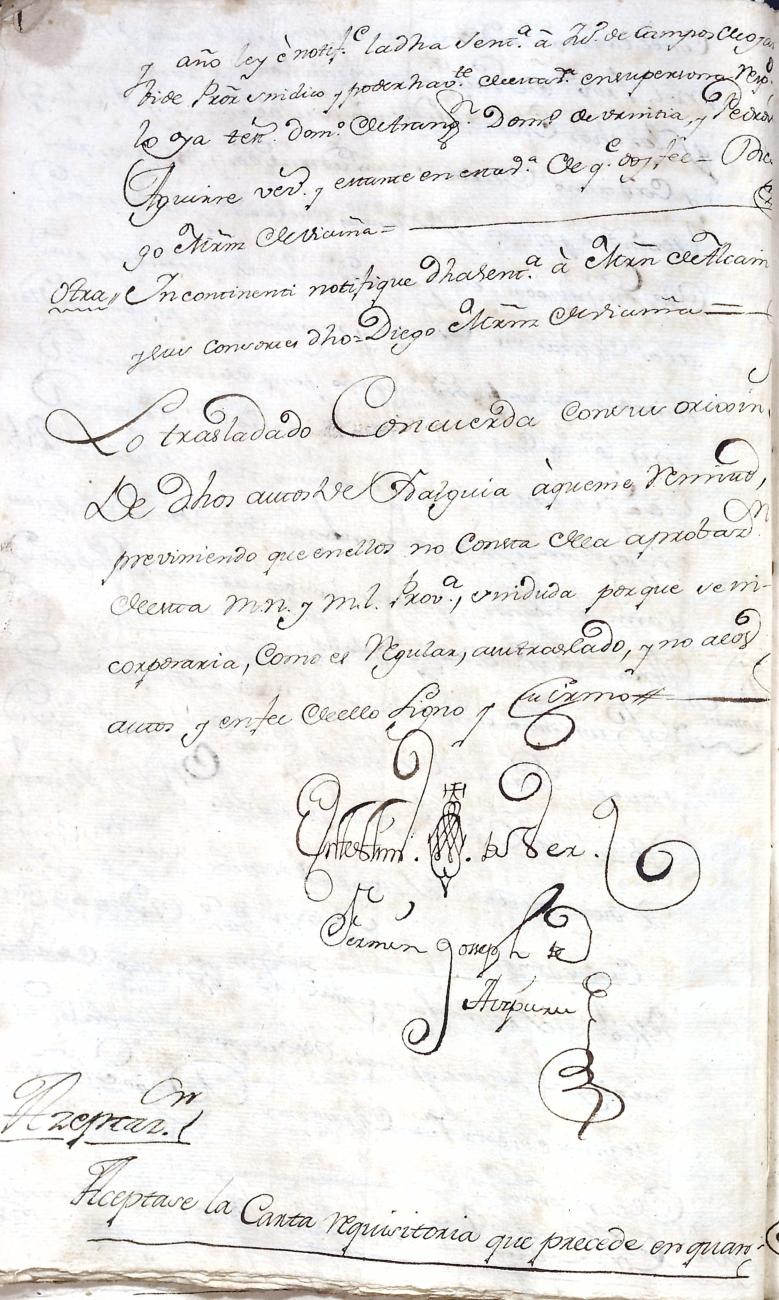 y año ley è notif.e la dha sent.a à de Campos
Pror sindico y poder hav.te en su persona
lo oya ten. dom.o Dom.o de Urrutia, y Pedro
Aguirre vez.s y estante en esta de q.e doy fee = Die
go Mrnz de Vicuña =
Otra,, Incontinenti notifique dha sent.a à Mrn de Alcain
y sus consortes dho = Diego Mrnz de Vicuña =
Lo trasladado Concuerda con sus origin
De dhos autos de Ydalguia à que me Remito,
previniendo que en ellos no Consta de la aprobaz.on
de esta M.N. y M.L. Prov.a, sin duda porque se in-
corporaria, Como es Regular, a su traslado, y no a los
autos y en fee de ello signo y firmo
En testim.o de Ver.
Fermin Joseph de
Aizpuru
Azeptaz.on
Aceptase la Carta requisitoria que precede en quan-